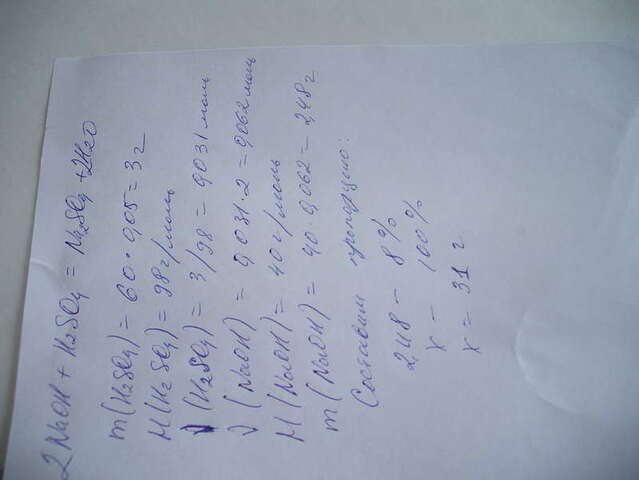 2NaOH + H₂SO₄ = Na₂SO₄ + 2H₂O
m(H₂SO₄) = 60 · 0,05 = 3г
M(H₂SO₄) = 98г/моль
ν(H₂SO₄) = 3/98 = 0,031 моль
ν(NaOH) = 0,031 · 2 = 0,062 моль
M(NaOH) = 40г/моль
m(NaOH) = 40 · 0,062 = 2,48г
Составим пропорцию:
2,48 – 8%
x – 100%
x = 31 г